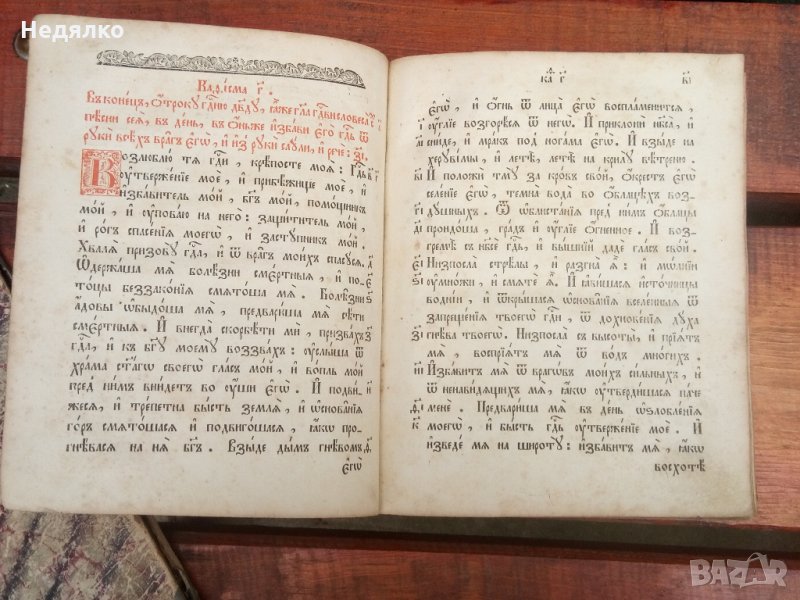 Недялко
Каѳісма г҃.
Въ конецъ, ѻ҆́троку гдⷭ҇ню дв҃ду, ꙗ҆̀же гл҃а гдⷭ҇ви словеса
пѣсни сеѧ̀, въ де́нь, в̾ ѻ҆́ньже и҆зба́ви є҆го̀ гдⷭ҇ь ѿ
рꙋкѝ всѣ́хъ вра̑гъ є҆гѡ̀, и҆ и҆з̾ рꙋкѝ саꙋ́ли, и҆ речѐ: з҃і.
Возлюблю́ тѧ гдⷭ҇и, крѣ́посте моѧ̀: гдⷭ҇ь
ᲂу҆твержде́нїе моѐ, и҆ прибѣ́жище моѐ, и҆
и҆зба́витель мо́й, бг҃ъ мо́й, помо́щникъ
мо́й, и҆ ᲂу҆пова́ю на него̀: защи́титель мо́й,
и҆ ро́гъ спасе́нїѧ моегѡ̀, и҆ застꙋ́пникъ мо́й.
Хвалѧ̀ призовꙋ̀ гдⷭ҇а, и҆ ѿ вра̑гъ мои́хъ спасꙋ́сѧ.
Ѡ҆держа́ша мѧ̀ болѣ̑зни сме́ртныѧ, и҆ по-
то́цы беззако́нїѧ смѧто́ша мѧ̀. Болѣ̑зни
а҆́довы ѡ҆быдо́ша мѧ̀, предвари́ша мѧ̀ сѣ̑ти
сме́ртныѧ. И҆ внегда̀ скорбѣ́ти мѝ, призва́хъ
гдⷭ҇а, и҆ къ бг҃ꙋ моемꙋ̀ воззва́хъ: ᲂу҆слы́ша ѿ
хра́ма ст҃а́гѡ своегѡ̀ гла́съ мо́й, и҆ во́пль мо́й
пред̾ ни́мъ вни́детъ во ᲂу҆́шы є҆гѡ̀. И҆ подви́-
жесѧ, и҆ тре́петна бы́сть землѧ̀, и҆ ѡ҆снова̑нїѧ
го́ръ смѧто́шасѧ и҆ подвиго́шасѧ, ꙗ҆́кѡ про-
гнѣ́васѧ на нѧ̀ бг҃ъ. Взы́де ды́мъ гнѣ́вомъ
є҆гѡ̀
ка́ѳ г҃
в҃і
є҆гѡ̀, и҆ ѻ҆́гнь ѿ лица̀ є҆гѡ̀ воспла́менитсѧ,
и҆ ᲂу҆́глїе возгорѣ́сѧ ѿ негѡ̀. И҆ приклонѝ нб҃са̀, и҆
сни́де, и҆ мра́къ под̾ нога́ма є҆гѡ̀. И҆ взы́де на
херꙋви́мы, и҆ летѣ̀, летѣ̀ на крилꙋ̀ вѣ́треню.
И҆ положѝ тмꙋ̀ за кро́въ сво́й, ѻ҆́крестъ є҆гѡ̀
селе́нїе є҆гѡ̀, темна̀ вода̀ во ѻ҆́блацѣхъ воз-
дꙋ́шныхъ. Ѿ ѡ҆блиста́нїѧ пред̾ ни́мъ ѻ҆́блацы
проидо́ша, гра́дъ и҆ ᲂу҆́глїе ѻ҆́гненное. И҆ воз-
гремѣ̀ с̾ нб҃сѐ гдⷭ҇ь, и҆ вы́шнїй дадѐ гла́съ сво́й.
Низпосла̀ стрѣ́лы, и҆ разгна̀ ѧ҆̀: и҆ мѡ́лнїи
ᲂу҆мно́жи, и҆ смѧтѐ ѧ҆̀. И҆ ꙗ҆ви́шасѧ и҆сто́чницы
водні́и, и҆ ѿкры́шасѧ ѡ҆снова̑нїѧ вселе́нныѧ ѿ
запреще́нїѧ твоегѡ̀ гдⷭ҇и, ѿ дохнове́нїѧ дꙋ́ха
гнѣ́ва твоегѡ̀. Низпосла̀ съ высоты̀, и҆ прїѧ́тъ
мѧ̀, воспрїѧ́тъ мѧ̀ ѿ во́дъ мно́гихъ.
И҆зба́витъ мѧ̀ ѿ врагѡ́въ мои́хъ си́льныхъ, и҆
ѿ ненави́дѧщихъ мѧ̀, ꙗ҆́кѡ ᲂу҆тверди́шасѧ па́че
менє̀. Предвари́ша мѧ̀ въ де́нь ѡ҆ѕлобле́нїѧ
моегѡ̀, и҆ бы́сть гдⷭ҇ь ᲂу҆твержде́нїе моѐ. И҆
и҆зведе́ мѧ на широтꙋ̀: и҆зба́витъ мѧ̀, ꙗ҆́кѡ
восхотѣ̀
BAZAR